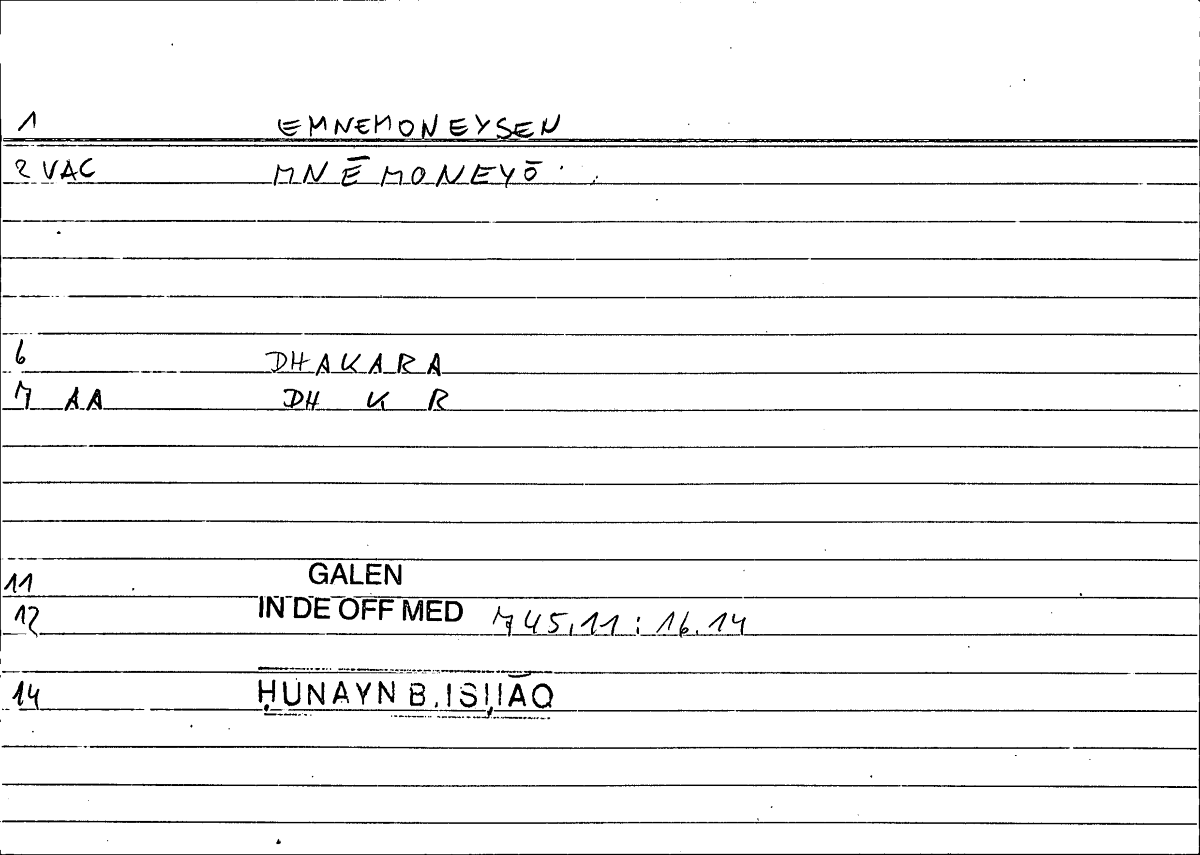 1 EMNEMONEYSEN
2 VAC MNĒMONEYŌ
6 DHAKARA
7 AA DH K R
11 GALEN
12 IN DE OFF MED 745.11 : 16.14
14 ḤUNAYN B. ISḤĀQ